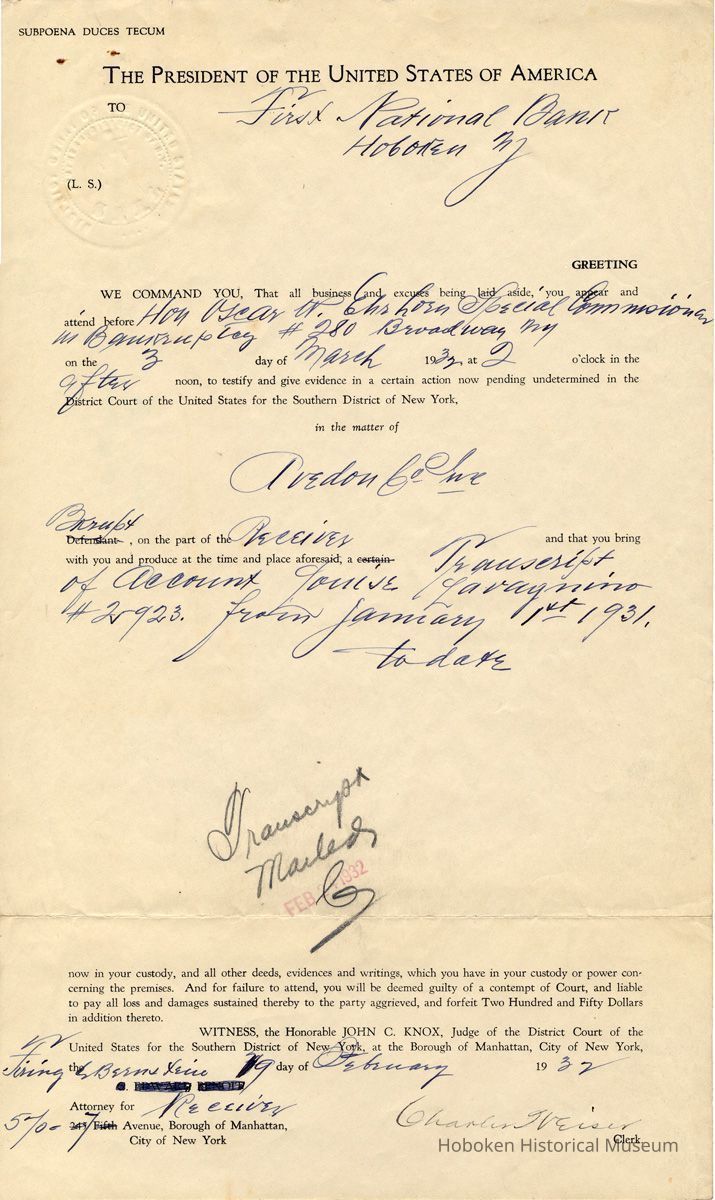 SUBPOENA DUCES TECUM
THE PRESIDENT OF THE UNITED STATES OF AMERICA
TO
First National Bank
Hoboken NJ
(L. S.)
GREETING
WE COMMAND YOU, That all business and excuses being laid aside, you appear and
attend before Hon Oscar W. Ehrhorn Special Commisioner
in Bankruptcy # 280 Broadway NY
on the 3 day of March 1932 at 2 o'clock in the
after noon, to testify and give evidence in a certain action now pending undetermined in the
District Court of the United States for the Southern District of New York,
in the matter of
Avedon Co Inc
Bkrupt
Defendant , on the part of the Receiver and that you bring
with you and produce at the time and place aforesaid, a certain Transcript
of Account Louise Cavagnino
# 2923. from January 1st 1931.
to date
Transcript
Mailed
FEB 1932
now in your custody, and all other deeds, evidences and writings, which you have in your custody or power con-
cerning the premises. And for failure to attend, you will be deemed guilty of a contempt of Court, and liable
to pay all loss and damages sustained thereby to the party aggrieved, and forfeit Two Hundred and Fifty Dollars
in addition thereto.
WITNESS, the Honorable JOHN C. KNOX, Judge of the District Court of the
United States for the Southern District of New York, at the Borough of Manhattan, City of New York,
the 19 day of February 1932
Attorney for Receiver
570-7 Fifth Avenue, Borough of Manhattan,
City of New York
Charles Weiser
Clerk
Hoboken Historical Museum